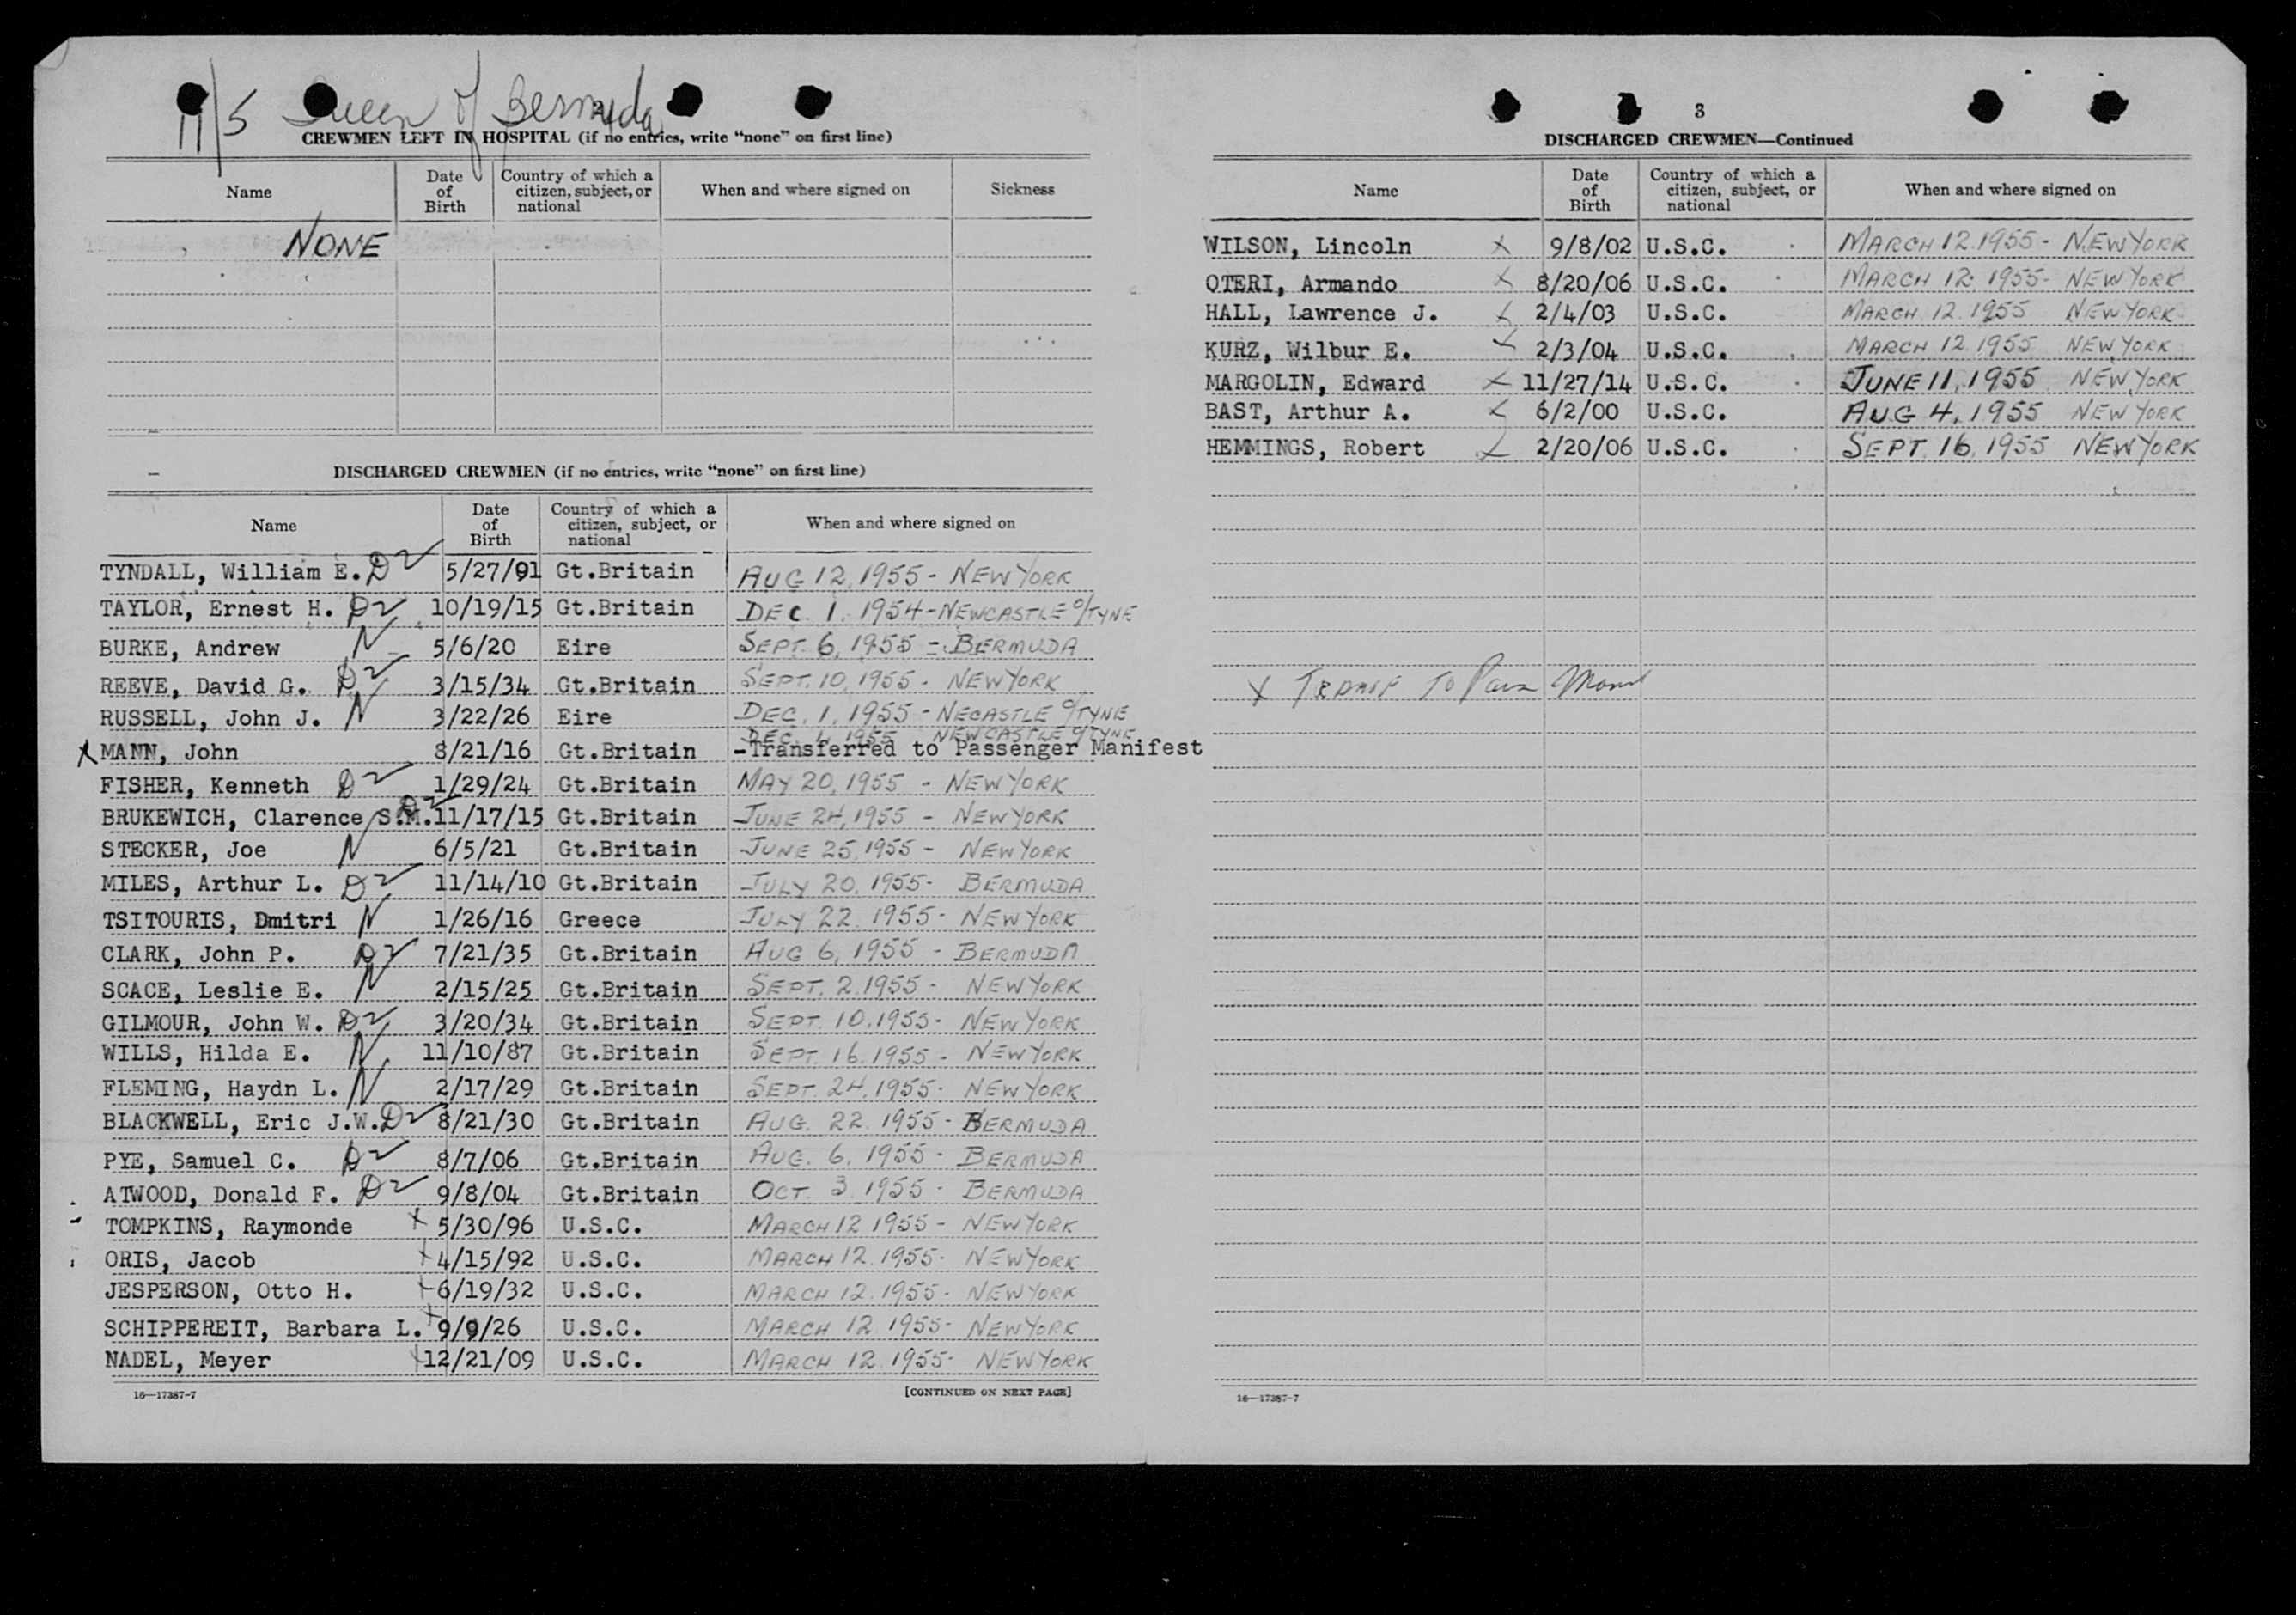 11/5 Queen of Bermuda
CREWMEN LEFT IN HOSPITAL (if no entries, write "none" on first line)
Name Date of Birth Country of which a citizen, subject, or national When and where signed on Sickness
NONE
DISCHARGED CREWMEN (if no entries, write "none" on first line)
Name Date of Birth Country of which a citizen, subject, or national When and where signed on
TYNDALL, William E. D2 5/27/91 Gt.Britain AUG 12, 1955 - NEW YORK
TAYLOR, Ernest H. D2 10/19/15 Gt.Britain DEC 1. 1954 - NEWCASTLE O/TYNE
BURKE, Andrew N 5/6/20 Eire SEPT. 6, 1955 - BERMUDA
REEVE, David G. D2 3/15/34 Gt.Britain SEPT. 10, 1955 - NEW YORK
RUSSELL, John J. N 3/22/26 Eire DEC. 1, 1955 - NECASTLE O/TYNE
DEC. 1, 1955 NEWCASTLE O/TYNE
X MANN, John 8/21/16 Gt.Britain -Transferred to Passenger Manifest
FISHER, Kenneth D2 1/29/24 Gt.Britain MAY 20, 1955 - NEW YORK
BRUKEWICH, Clarence S.M. D2 11/17/15 Gt.Britain JUNE 24, 1955 - NEW YORK
STECKER, Joe N 6/5/21 Gt.Britain JUNE 25, 1955 - NEW YORK
MILES, Arthur L. D2 11/14/10 Gt.Britain JULY 20, 1955 - BERMUDA
TSITOURIS, Dmitri N 1/26/16 Greece JULY 22. 1955 - NEW YORK
CLARK, John P. D2 7/21/35 Gt.Britain AUG 6, 1955 - BERMUDA
SCACE, Leslie E. N 2/15/25 Gt.Britain SEPT. 2. 1955 - NEW YORK
GILMOUR, John W. D2 3/20/34 Gt.Britain SEPT 10. 1955 - NEW YORK
WILLS, Hilda E. N 11/10/87 Gt.Britain SEPT. 16. 1955 - NEW YORK
FLEMING, Haydn L. N 2/17/29 Gt.Britain SEPT. 24. 1955 - NEW YORK
BLACKWELL, Eric J.W. D2 8/21/30 Gt.Britain AUG. 22. 1955 - BERMUDA
PYE, Samuel C. D2 8/7/06 Gt.Britain AUG. 6. 1955 - BERMUDA
ATWOOD, Donald F. D2 9/8/04 Gt.Britain OCT. 3 1955 - BERMUDA
TOMPKINS, Raymonde X 5/30/96 U.S.C. MARCH 12 1955 - NEW YORK
ORIS, Jacob X 4/15/92 U.S.C. MARCH 12. 1955 - NEW YORK
JESPERSON, Otto H. X 6/19/32 U.S.C. MARCH 12. 1955 - NEW YORK
SCHIPPEREIT, Barbara L. X 9/9/26 U.S.C. MARCH 12 1955 - NEW YORK
NADEL, Meyer X 12/21/09 U.S.C. MARCH 12. 1955 - NEW YORK
16—17387-7 [CONTINUED ON NEXT PAGE]
3
DISCHARGED CREWMEN—Continued
Name Date of Birth Country of which a citizen, subject, or national When and where signed on
WILSON, Lincoln X 9/8/02 U.S.C. MARCH 12. 1955 - NEW YORK
OTERI, Armando X 8/20/06 U.S.C. MARCH 12. 1955 - NEW YORK
HALL, Lawrence J. X 2/4/03 U.S.C. MARCH 12. 1955 NEW YORK
KURZ, Wilbur E. X 2/3/04 U.S.C. MARCH 12. 1955 NEW YORK
MARGOLIN, Edward X 11/27/14 U.S.C. JUNE 11, 1955 NEW YORK
BAST, Arthur A. X 6/2/00 U.S.C. AUG 4, 1955 NEW YORK
HEMMINGS, Robert X 2/20/06 U.S.C. SEPT. 16, 1955 NEW YORK
X To
16—17387-7